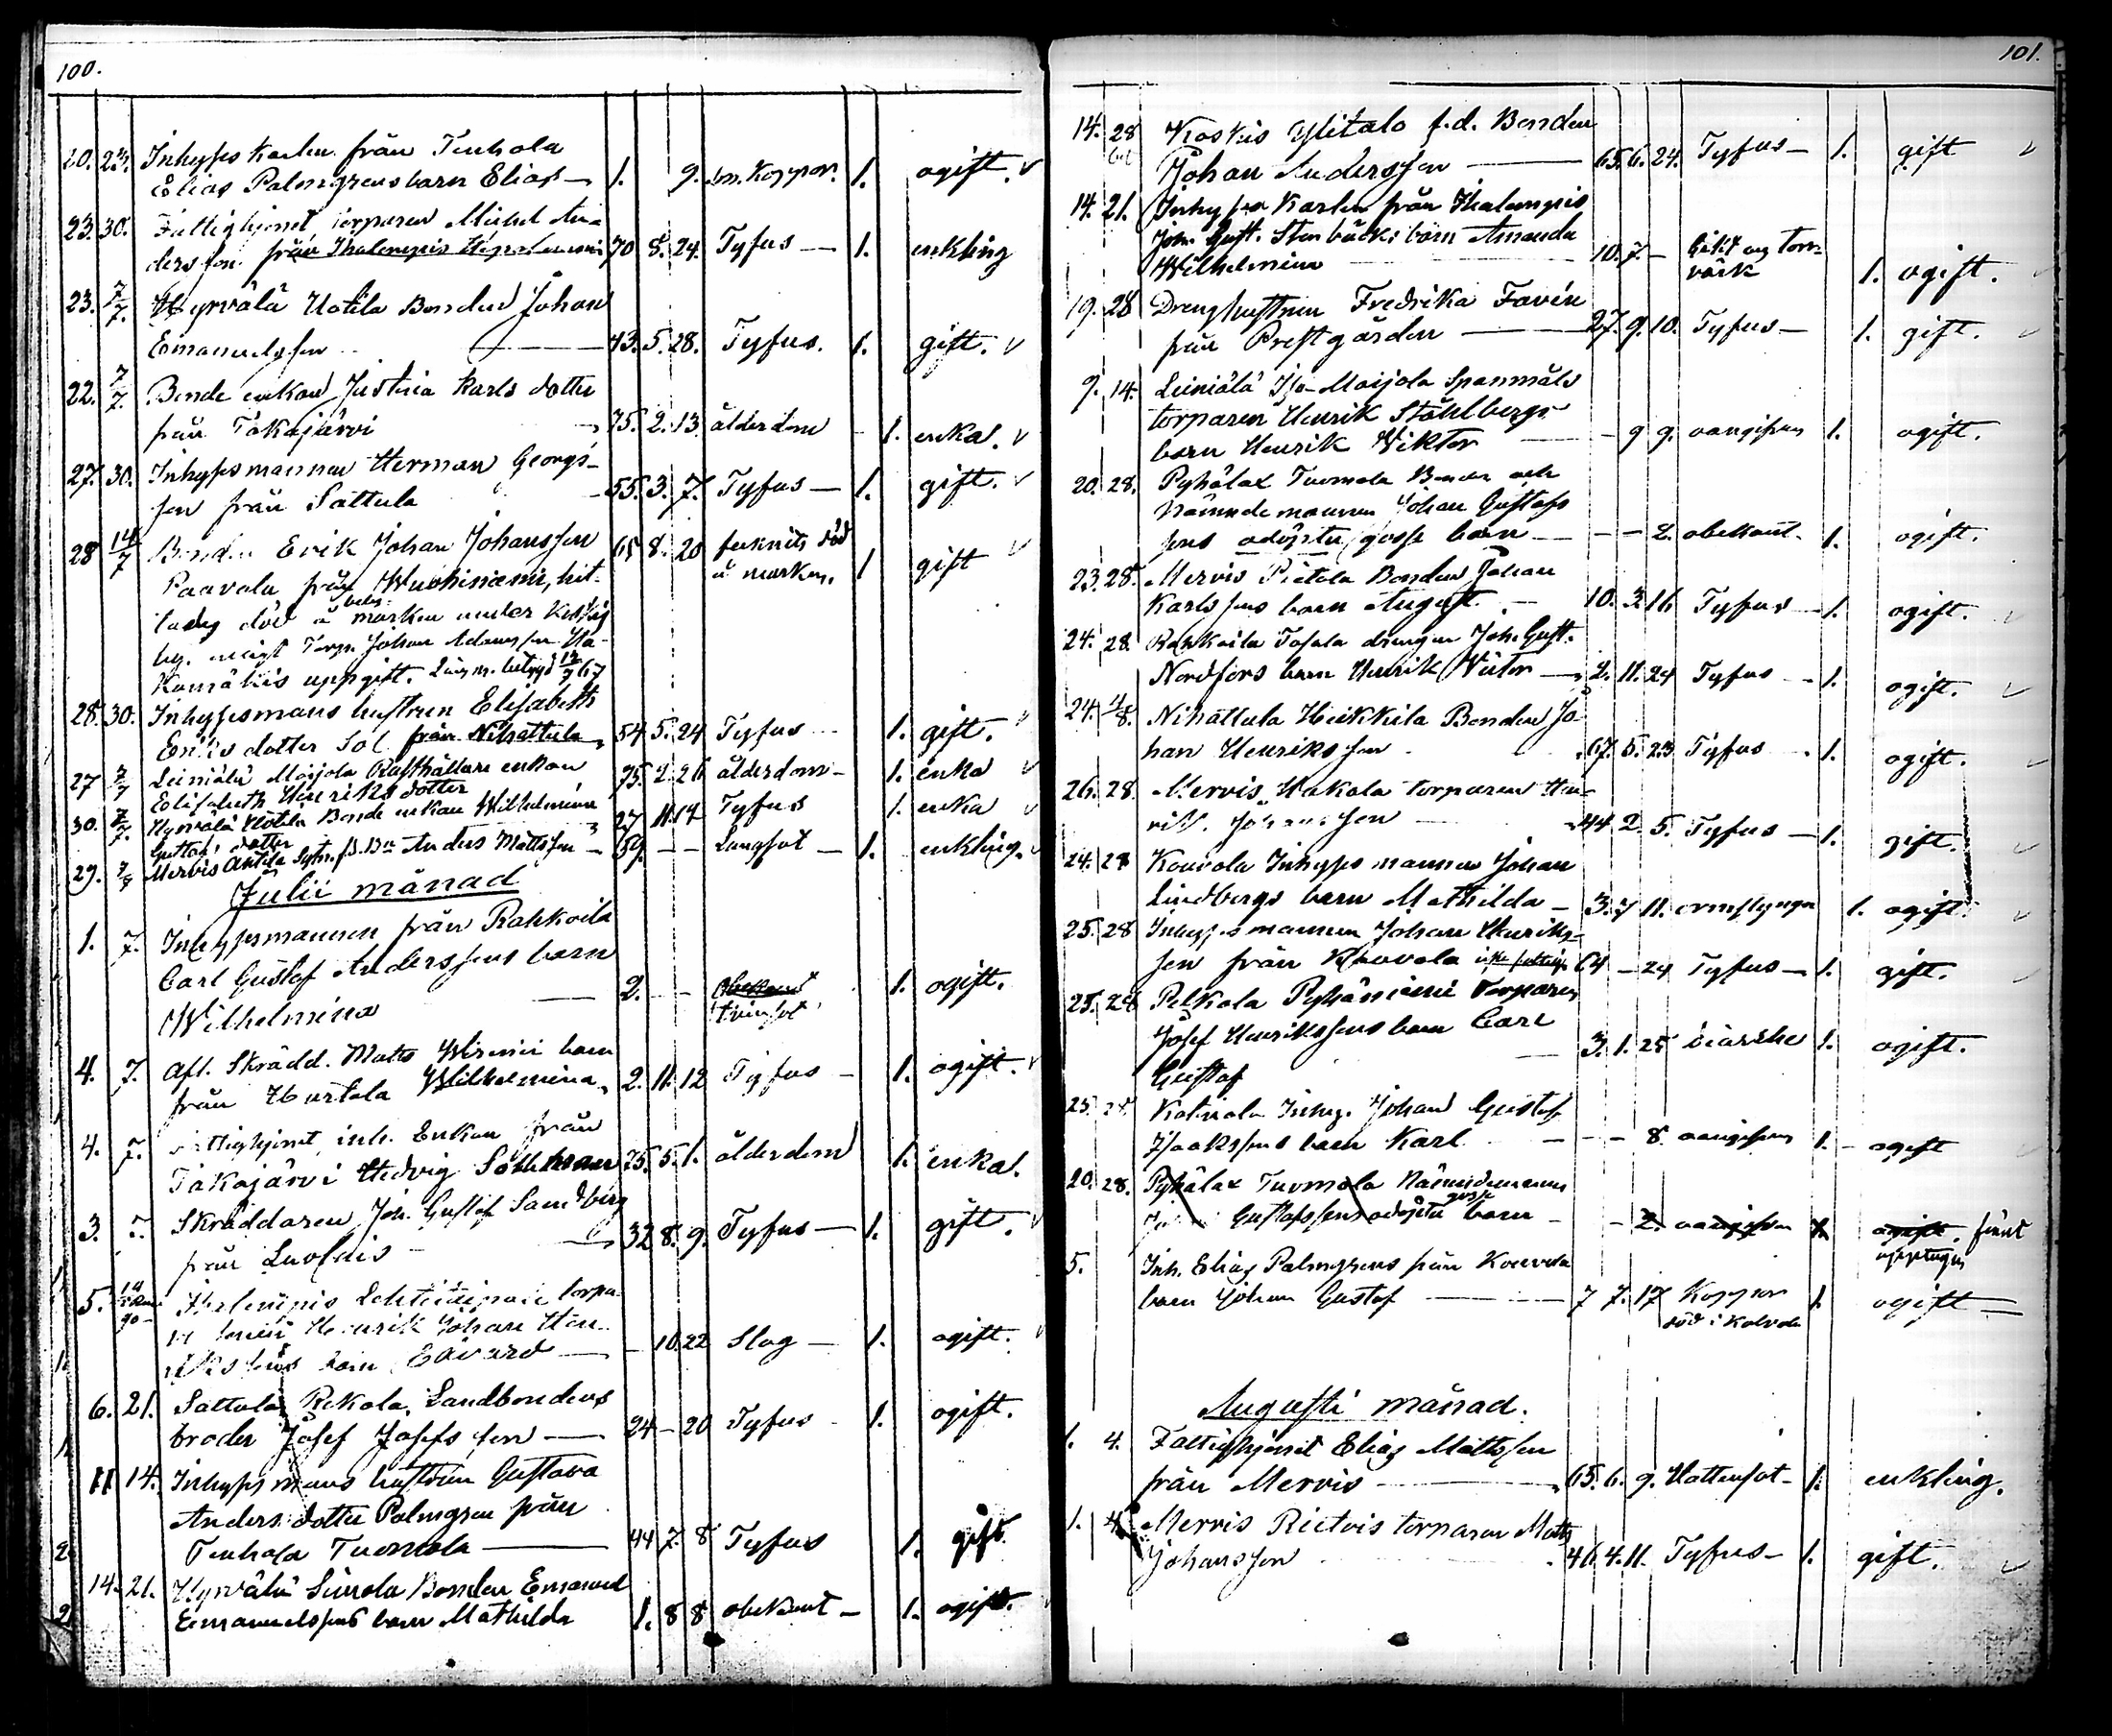 100.
20. 23. Inhyses karlen från Tenhola
Elias Palmgrens barn Elias — 1. 9. Koppor. 1. ogift.
23. 30. Fattighjonet, torparen Michel An-
dersson från Ihalempis 70 8. 24. Tyfus — 1. enkling
23. 7/7. Hyrvälä Uotila Bonden Johan
Emanuelsson — 43. 5. 28. Tyfus. 1. gift.
22. 7/7. Bonde enkan Justina Karls dotter
från Takajärvi 75. 2. 13. ålderdom 1. enka.
27. 30. Inhyses mannen Herman Georgs-
son från Sattula 55. 3. 7. Tyfus — 1. gift.
28 14/7 Bonden Erik Johan Johansson 65 8. 20 död
Paavola från Wuohiniemi, hit- å marken, 1 gift
död å marken under
Torp. Johan Adamsson
uppgift.
28. 30. Inhysesmans hustrun Elisabeth
Eriks dotter från Nihattula 54 5. 24 Tyfus 1. gift.
27 7/7 Leiniälä Maijola Rusthållare enkan 75. 2. 26 ålderdom — 1. enka
Elisabeth Henriks dotter
30. 7/7. Hyrvälä Uotila Bonde enkan Wilhelmina 27 11 17 Tyfus 1. enka
Gustafs dotter
29. 7/7 Mervis Anttila Anders Mattsson — 59. — — Lungsot — 1. enkling.
Julii månad
1. 7. Inhysesmannen från Rahkoila
Carl Gustaf Anderssons barn
Wilhelmina — 2. — — tvinsot 1. ogift.
4. 7. Afl. Skrädd. Matts barn
från Hurtala Wilhelmina 2. 11. 12 Tyfus — 1. ogift.
4. 7. Fattighjonet, inh. Enkan från
Takajärvi Hedvig 75. 5. 1. ålderdom 1. enka.
3. 7. Skräddaren Joh. Gustaf Sandberg
från Luolais — 32 8. 9. Tyfus — 1. gift.
5. Ihalempis torpa-
Henrik Johan Hen-
rikssons barn Edvard — — 10. 22 Slag — 1. ogift.
6. 21. Sattula Rekola Landbondens
broder Josef Josefsson — 24 — 20 Tyfus 1. ogift.
11 14. Inhyses mans hustrun Gustava
Anders dotter Palmgren från
Tenhola Tuomola — 44 7. 8 Tyfus 1. gift.
14. 21. Hyrvälä Simola Bonden Emanuel
Emanuelssons barn Mathilda 1. 8 8 obekant — 1. ogift.
101.
14. 28 Koskis Ylitalo f.d. Bonden
Johan Andersson — 65. 6. 24. Tyfus — 1. gift
14. 21. Inhyses Karlen från Ihalempis
Joh. Gust. Stenbäcks barn Amanda
Wilhelmina 10. 7. — torr-
värk 1. ogift.
19. 28 Dreng hustrun Fredrika Favén
från Prestgården — 27. 9. 10. Tyfus — 1. gift.
9. 14. Leiniälä Iso-Maijola Spanmåls
torparen Henrik Ståhlbergs
barn Henrik Viktor — 9 9. oangifven 1. ogift.
20. 28. Pyhälax Tuomola Bonden och
Nämndemannen Johan Gustafs
sons odöpta gosse barn — — — 2. obekant. 1. ogift.
23. 28. Mervis Pietola Bonden Johan
Karlssons barn August. — 10. 3. 16. Tyfus — 1. ogift.
24. 28. Rahkoila Tasala drengen Joh. Gust.
Nordfors barn Henrik Victor — 2. 11. 24 Tyfus — 1. ogift.
24. 4/8. Nihattula Heikkilä Bonden Jo-
han Henriksson 67. 5. 23 Tyfus 1. ogift.
26. 28. Mervis Wakala torparen Hen-
rik Johansson — 44 2. 5. Tyfus — 1. gift.
24. 28 Kouvola Inhyses mannen Johan
Lindbergs barn Mathilda — 3. 7 11. 1. ogift.
25. 28 Inhyses mannen Johan Henriks-
son från Kouvola 64 — 24 Tyfus — 1. gift.
25. 28 Pelkola Pyhäniemi Torparen
Josef Henrikssons barn Carl
Gustaf — 3. 1. 25 1. ogift.
25. 28. Katvala Inhys. Johan Gustaf
Isakssons barn Karl — — — 8. oangifven 1. — ogift
20. 28. Pyhälax Tuomola Nämndemannen
gosse
Johan Gustafssons odöpta barn — — 2. oangifven 1. ogift. förut
upptagen
5. Inh. Elias Palmgrens från Kouvola
barn Johan Gustaf — 7 7. 17 Koppor 1. ogift —
död i Kalvola
Augusti månad.
1. 4. Fattighjonet Elias Mattsson
från Mervis — 65. 6. 9. Vattensot — 1. enkling.
1. 4. Mervis Rietois torparen Matts
Johansson 46. 4. 11. Tyfus — 1. gift.